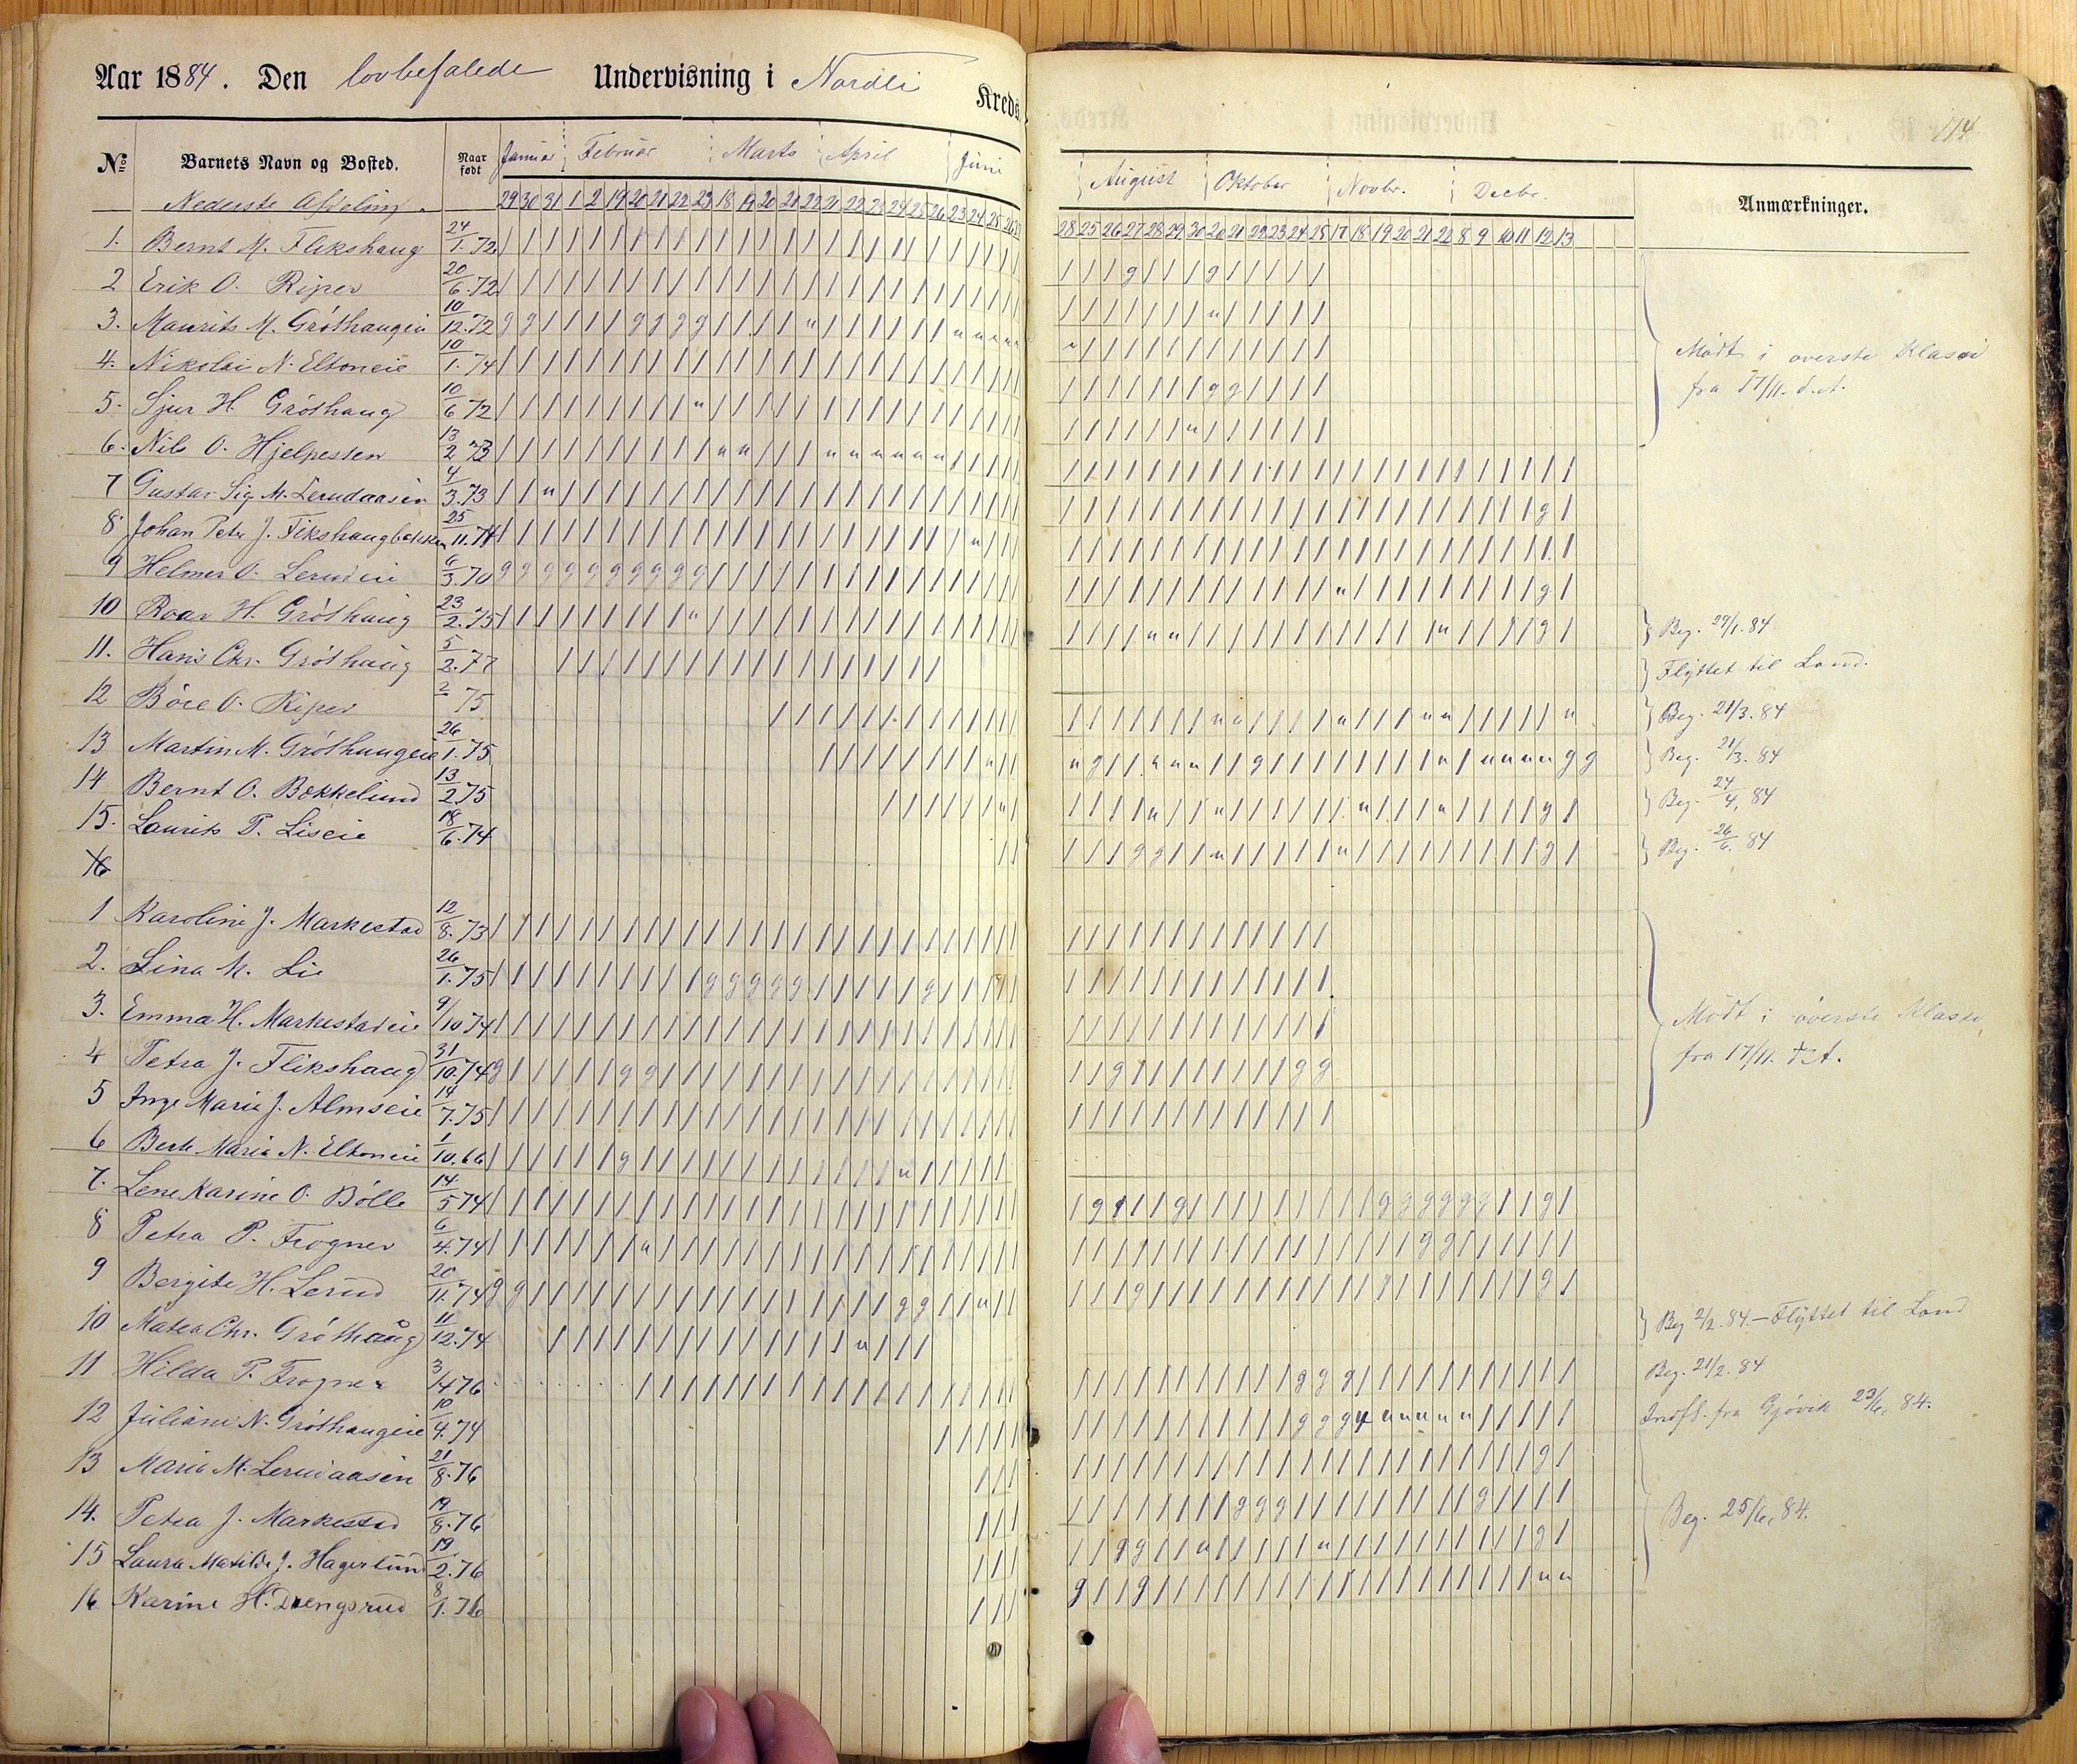 Aar 1884. Den lovbefalede Undervisning i Nordli Kreds.
114
No. Barnets Navn og Bosted. Naar født Januar Februar Marts April Juni August Oktober Novbr. Decbr. Anmærkninger.
Nederste Afdeling.
29 30 31 1 2 19 20 21 22 23 18 19 20 21 22 21 22 23 24 25 26 23 24 25 26
28 25 26 27 28 29 30 20 21 22 23 24 25 17 18 19 20 21 22 8 9 10 11 12 13
1. Bernt M. Flikshaug 24/1.72
2 Erik O. Riper 20/6.72
3. Maurits M. Gróthaugen 10/12.72
4. Nikolai N. Eltoneie 10/1.74
5. Sjur H. Gróthaug 10/6 72
Mödt i överste Klasse
fra 17/11. d.A.
6. Nils O. Hjelpesten 13/2 73
7 Gustav Sig. M. Lerudaasen 4/3.73
8 Johan Petr J. Flikshaugbakken 25/11.74
9 Helmer O. Lerudeie 6/3.70
10 Roar H. Gróthaug 23/2.75 Beg. 29/1.84
11. Hans Chr. Gróthaug 5/2.77 Flyttet til Land.
12 Böre O. Riper 2 75 Beg. 21/3.84
13 Martin M. Gróthaugeie 26/1.75 Beg. 21/3.84
14 Bernt O. Bokkelund 13/2.75 Beg. 24/4, 84
15. Laurits P. Liseie 18/6.74 Beg. 26/6. 84
16
1 Karoline J. Markestad 12/8.73
2. Lina M. Lie 26/1.75
3. Emma H. Markestadeie 9/10 74
4 Petra J. Flikshaug 31/10.74
5 Inge Marie J. Almseie 14/7.75
Mödt i överste Klasse,
fra 17/11. d.A.
6 Berte Maria N. Eltoneie 1/10.66
7. Lene Karine O. Bölle 14/5 74
8 Petra P. Frogner 6/4.74
9 Bergite H. Lerud 20/11.74
10 Matea Chr. Gróthaug 11/12.74 Beg 2/2.84.—Flyttet til Land
11 Hilda P. Frogner 3/1476 Beg. 21/2.84
12 Juliane N. Gróthaugeie 10/4.74 Indfl. fra Gjövik 23/6, 84.
13 Maria M. Lerudaasen 21/8.76
14. Petra J. Markestad 19/8.76
15 Laura Matilde J. Hagerlund 19/2.76
16 Karine H. Drengsrud 8/1.76
Beg. 25/6, 84.